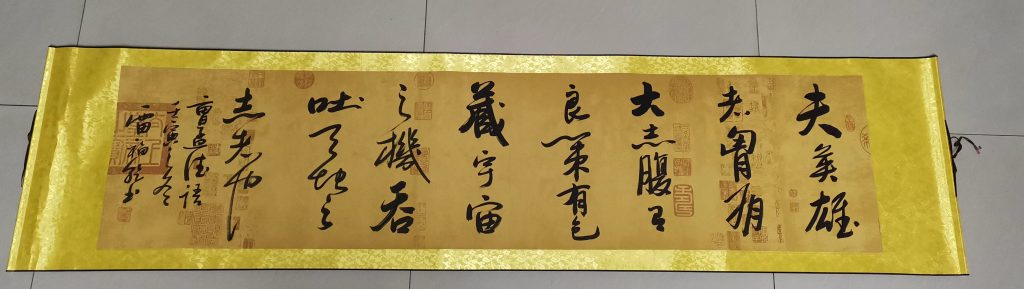 夫英雄
者胷有
大志腹有
良策有包
藏宇宙
之機吞
吐天地之
志者也
曹孟德語
壬寅之冬
雷書